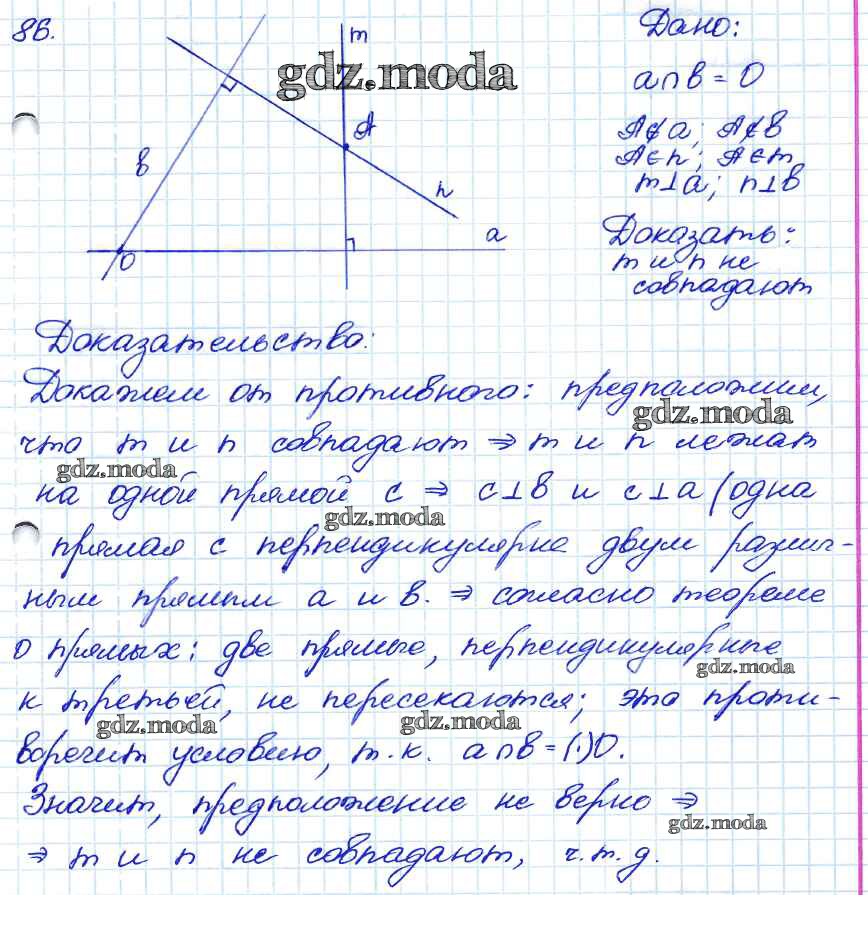 86.
m
gdz.moda
Дано:
a∩b = O
A∉a; A∉b
A∈n; A∈m
m⊥a; n⊥b
A
b
n
a
O
Доказать:
m и n не
совпадают
Доказательство:
Докажем от противного: предположим,
gdz.moda
что m и n совпадают ⇒ m и n лежат
gdz.moda
на одной прямой c ⇒ c⊥b и c⊥a (одна
gdz.moda
прямая c перпендикулярна двум различ-
ным прямым a и b. ⇒ согласно теореме
о прямых: две прямые, перпендикулярные
gdz.moda
к третьей, не пересекаются; это проти-
gdz.moda
gdz.moda
воречит условию, т.к. a∩b = (·)O.
Значит, предположение не верно ⇒
gdz.moda
⇒ m и n не совпадают, ч.т.д.